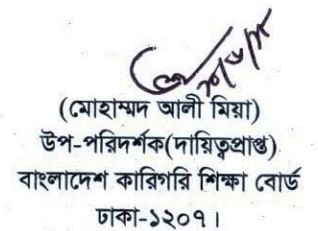 (মোহাম্মদ আলী মিয়া)
উপ-পরিদর্শক(দায়িত্বপ্রাপ্ত)
বাংলাদেশ কারিগরি শিক্ষা বোর্ড
ঢাকা-১২০৭।